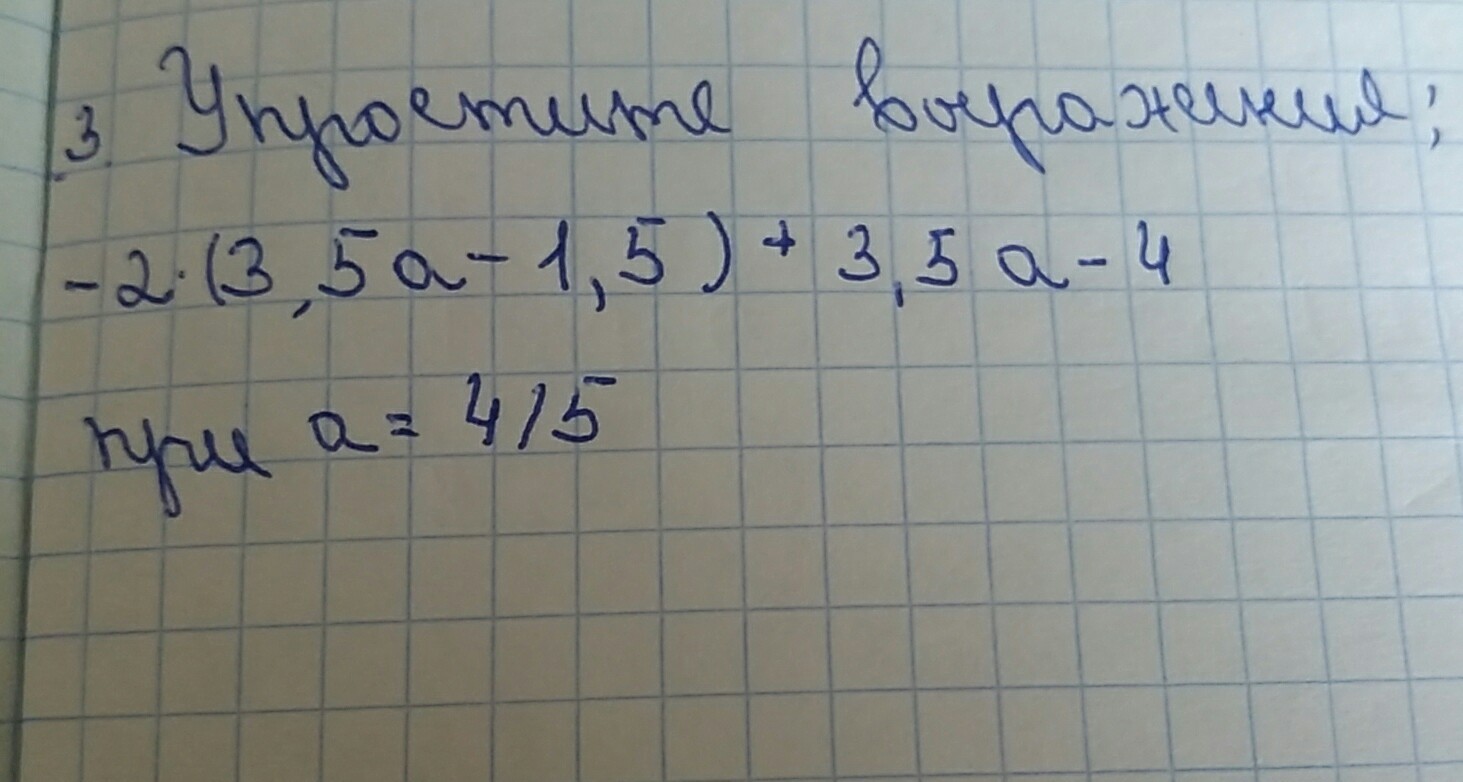 3. Упростите выражение;
-2·(3,5a-1,5)+3,5a-4
при a=4/5